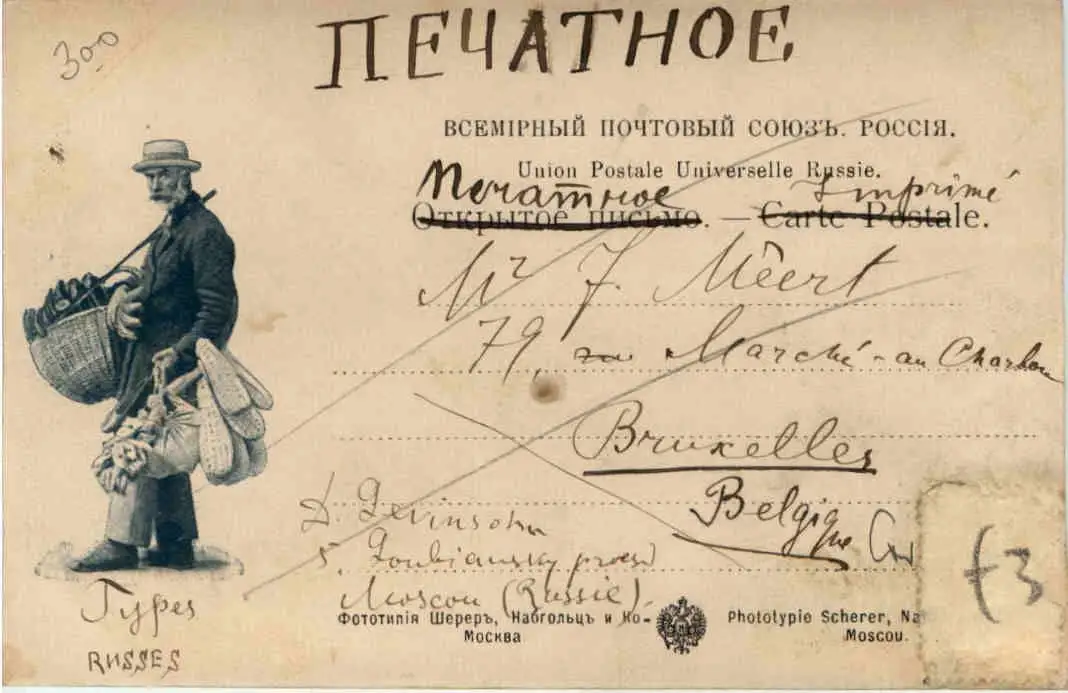 300
ПЕЧАТНОЕ
ВСЕМІРНЫЙ ПОЧТОВЫЙ СОЮЗЪ. РОССІЯ.
Union Postale Universelle Russie.
Печатное Imprimé
Открытое письмо. — Carte Postale.
Mr J. Meert
79, Marché-au Charbon
Bruxelles
Belgique
D. Levinsohn
5, Loubiansky
Moscou (Russie).
Types
RUSSES
Фототипія Шереръ, Набгольцъ и Ко-
Москва
Phototypie Scherer, Na
Moscou.
f3